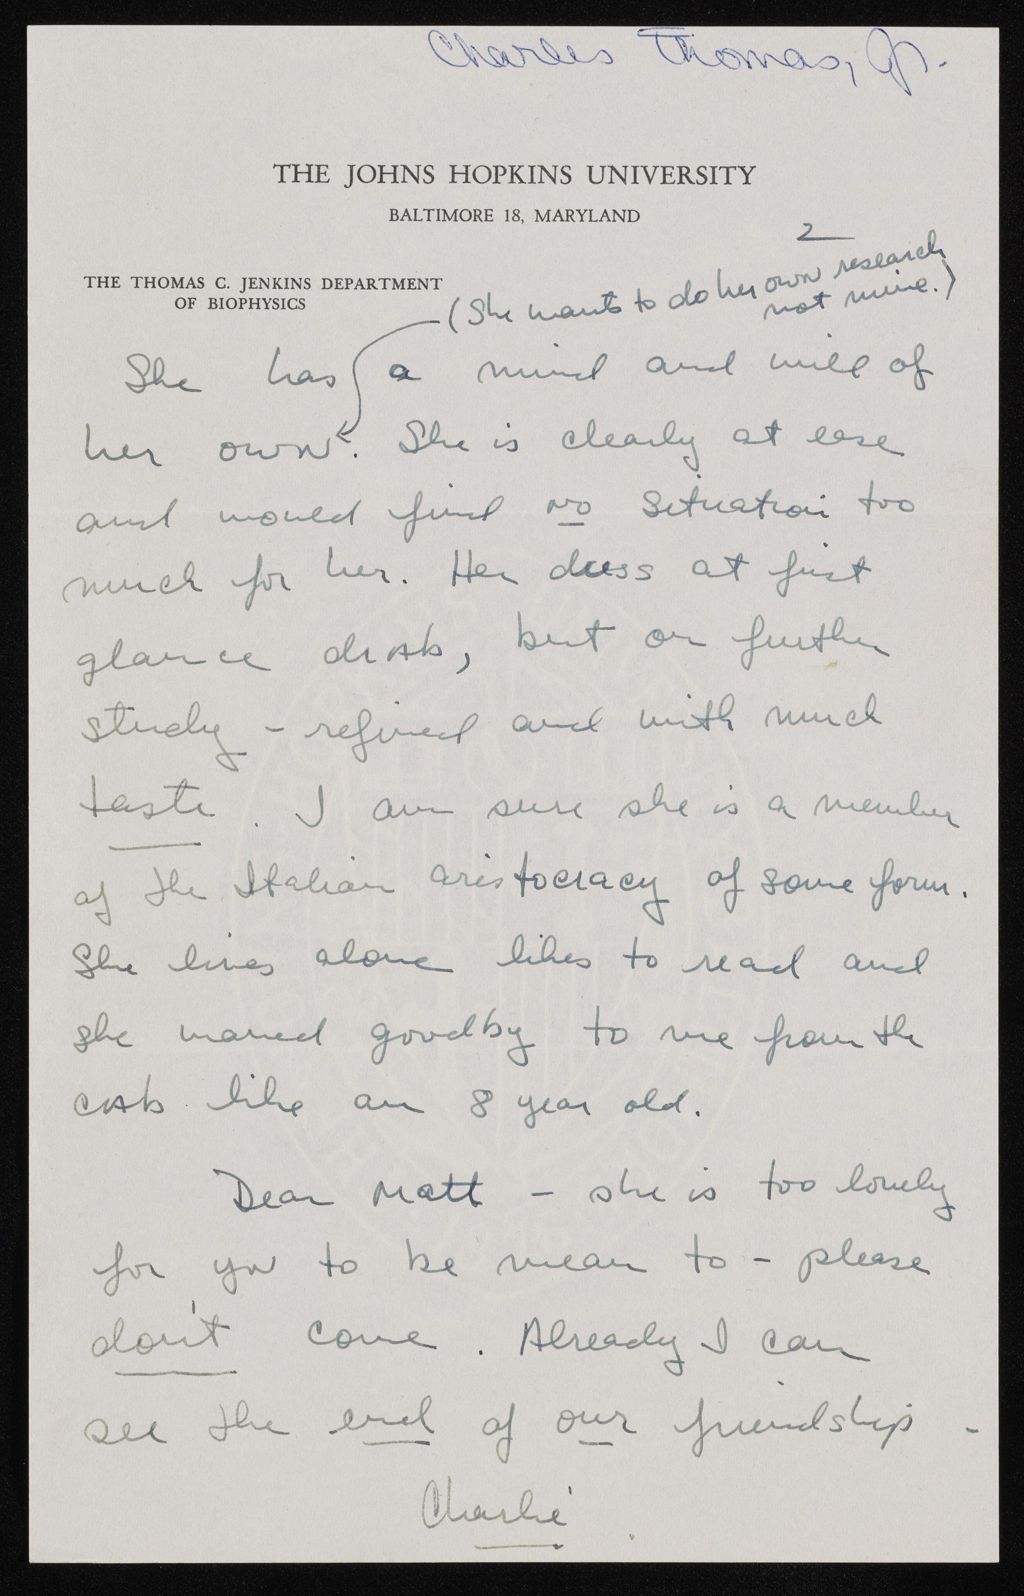 Charles Thomas, Jr.
THE JOHNS HOPKINS UNIVERSITY
BALTIMORE 18, MARYLAND
2
THE THOMAS C. JENKINS DEPARTMENT
OF BIOPHYSICS
(She wants to do her own research
not mine.)
She has a mind and will of
her own. She is clearly at ease
and would find no situation too
much for her. Her dress at first
glance drab, but on further
study - refined and with much
taste. I am sure she is a member
of the Italian aristocracy of some form.
She lives alone likes to read and
she waved goodby to me from the
cab like an 8 year old.
Dear Matt - she is too lovely
for you to be mean to - please
don't come. Already I can
see the end of our friendship -
Charlie